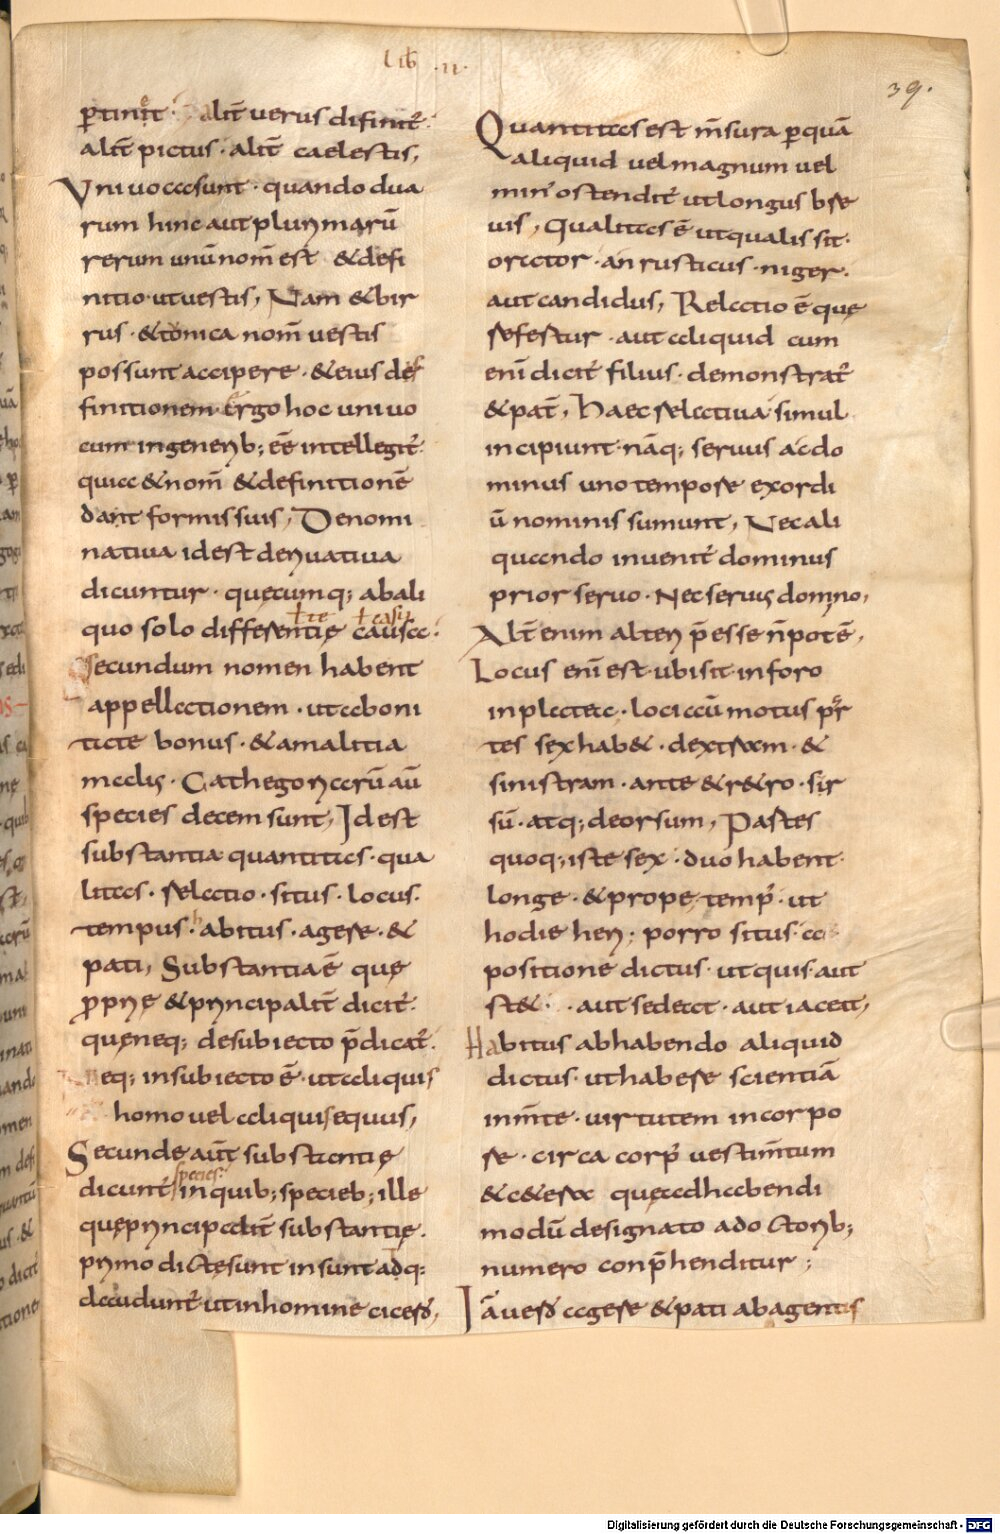 Lib̅ ·ii·
39.
p̲tinet̅ alit̅ uerus difinit̅.
alit̅ pictus · alit̅ caelestis,
Vniuoca sunt · quando dua
rum hinc aut plurimarū
rerum unū nom̅ est & defi
nitio · ut uestis, Nam & bir
rus · & tonica nom̅ uestis
possunt accipere · & eius de
finitionem. Ergo hoc uniuo
cum in generib; eē intellegit̅.
quia & nom̅ & definitionē
dant formis suis, Denomi
natiua id est deriuatiua
dicuntur · quęcumq; ab ali
quo solo differentię causa:
secundum nomen habent
appellationem · ut a boni
tate bonus · & a malitia
malus · Cathegoriarū aū
species decem sunt, Id est
substantia quantitas · qua
litas · relatio · situs · locus.
tempus · habitus · agere · &
pati, Substantia ē quę
p̲prię & principalit̅ dicit̅.
quę neq; de subiecto p̅dicat̅.
neq; in subiecto ē · ut aliquis
homo uel aliquis equus,
Secundę aūt substantię
species:
dicunt̅ in quib; specieb; ille
quę principalit̅ substantię.
primo dictę sunt insunt adq:
claudunt̅ ut in homine cicero,
Quantitas est m̅sura p̲ quā
aliquid uel magnum uel
min' ostendit̅ ut longus bre
uis, Qualitas ē ut qualis sit·
orator · an rusticus · niger.
aut candidus, Relatio ē quę
refertur · aut aliquid cum
enī dicit̅ filius · demonstrat̅
& pat̅, Haec relectiua simul
incipiunt · nāq; seruus ac do
minus uno tempore exordi
ū nominis sumunt, Nec ali
quando inuenit̅ dominus
prior seruo · Nec seruus domino,
Alt̅ enim alteri p̅esse n̅ potē,
Locus enī est ubi sit in foro
in platea · loci aū motus par
tes sex hab& · dextram · &
sinistram · ante & r&ro · sur
sū · atq; deorsum, Partes
quoq; iste sex · duo habent·
longe · & prope · temp̅ · ut
hodie heri; porro situs · a
positione dictus · ut quis · aut
st& · aut sedeat · aut iaceat,
Habitus ab habendo aliquid
dictus · ut habere scientiā
in m̅te · uirtutem in corpo
re · circa corp̅ uestim̅tum
& c&era quę ad habendi
modū designato a doctorib;
numero conp̅henditur;
Iā uero agere & pati ab agentis
Digitalisierung gefördert durch die Deutsche Forschungsgemeinschaft - DFG